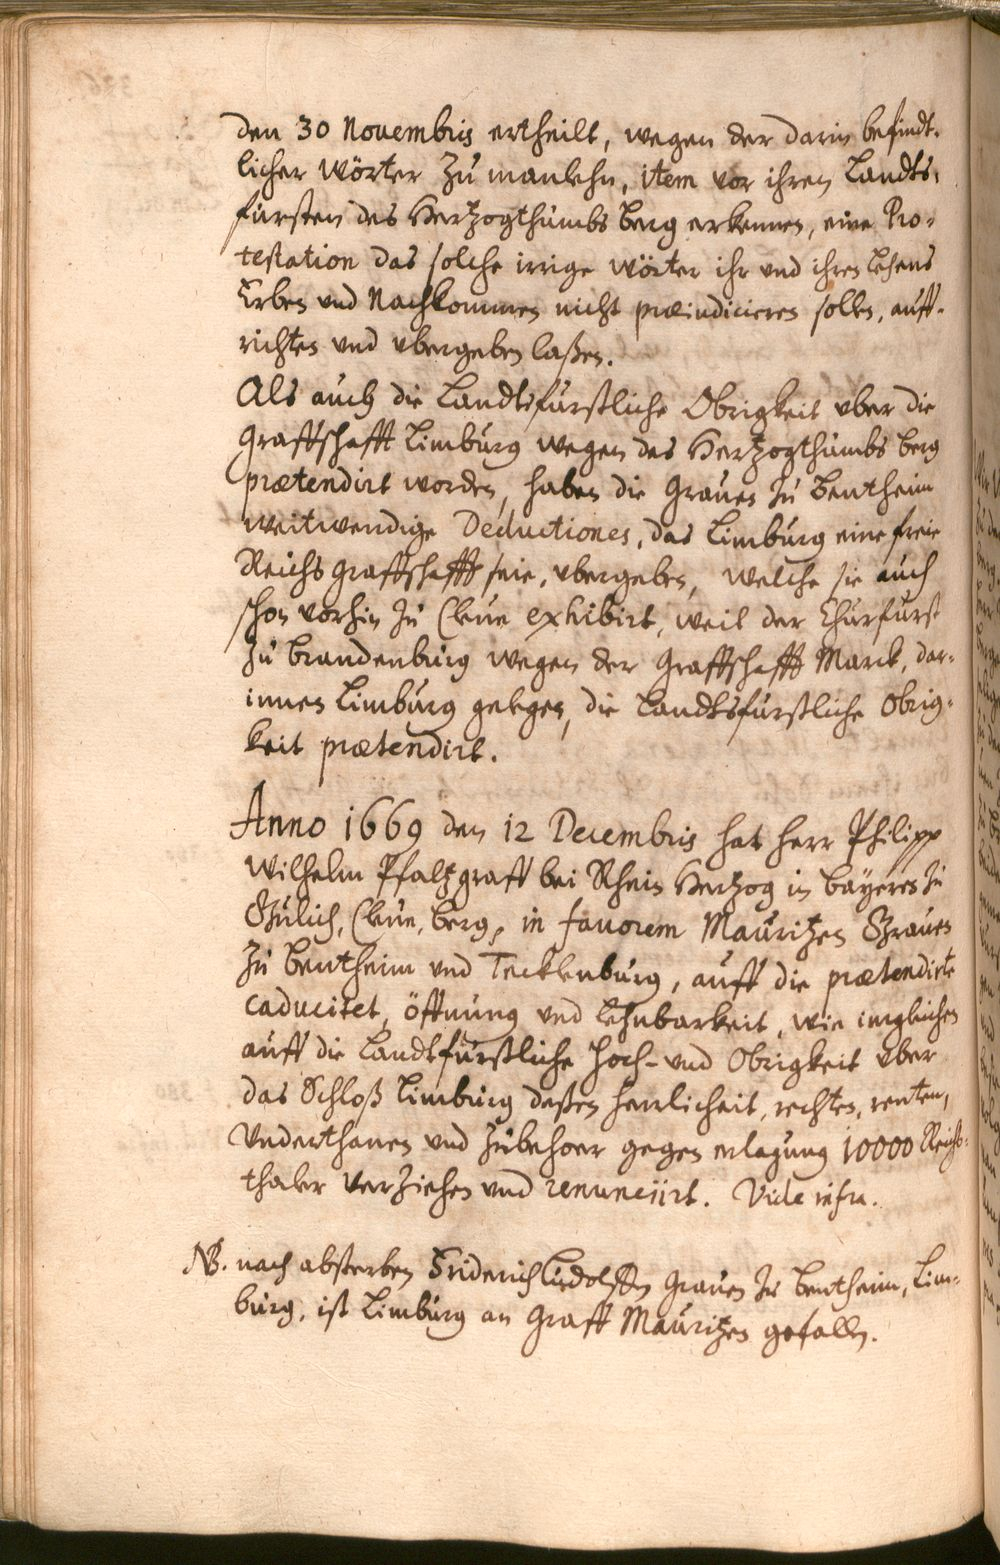 den 30 Novembris ertheilt, wegen der darin befindt-
licher wörter zu manlehn, item vor ihren Landts-
fürsten des Hertzogthumbs Berg erkennen, eine Pro-
testation das solche irrige wörter ihr und ihren Lehens
Erben und Nachkommen nicht præiudicieren sollen, auff-
richten und ubergeben laßen.
Als auch die Landtsfürstliche Obrigkeit uber die
Graffschafft Limburg wegen des Hertzogthumbs Berg
prætendirt worden, haben die Grauen zu Bentheim
weitwendige Deductiones, das Limburg eine freie
Reichs Graffschafft seie, ubergeben, welche sie auch
schon vorhin zu Cleue exhibirt, weil der Churfürst
zu Brandenburg wegen der Graffschafft Marck, dar-
innen Limburg gelegen, die Landtsfürstliche Obrig-
keit prætendirt.
Anno 1669 den 12 Decembris hat Herr Philipp
Wilhelm Pfaltzgraff bei Rhein Hertzog in Bayeren zu
Gulich, Cleue, Berg, in fauorem Mauritzen Grauen
zu Bentheim und Tecklenburg, auff die prætendirte
caducitet, öffnung und Lehnbarkeit, wie imgleichen
auff die Landtfürstliche Hoch- und Obrigkeit uber
das Schloß Limburg deßen herrlicheit, rechten, renten,
Underthanen und Zubehoer gegen erlagung 10000 Reichs-
thaler verziehen und renunciirt. Vide infra.
NB. nach absterben Friderich Ludolffen Grauen zu Bentheim, Lim-
burg, ist Limburg an Graff Mauritzen gefallen.